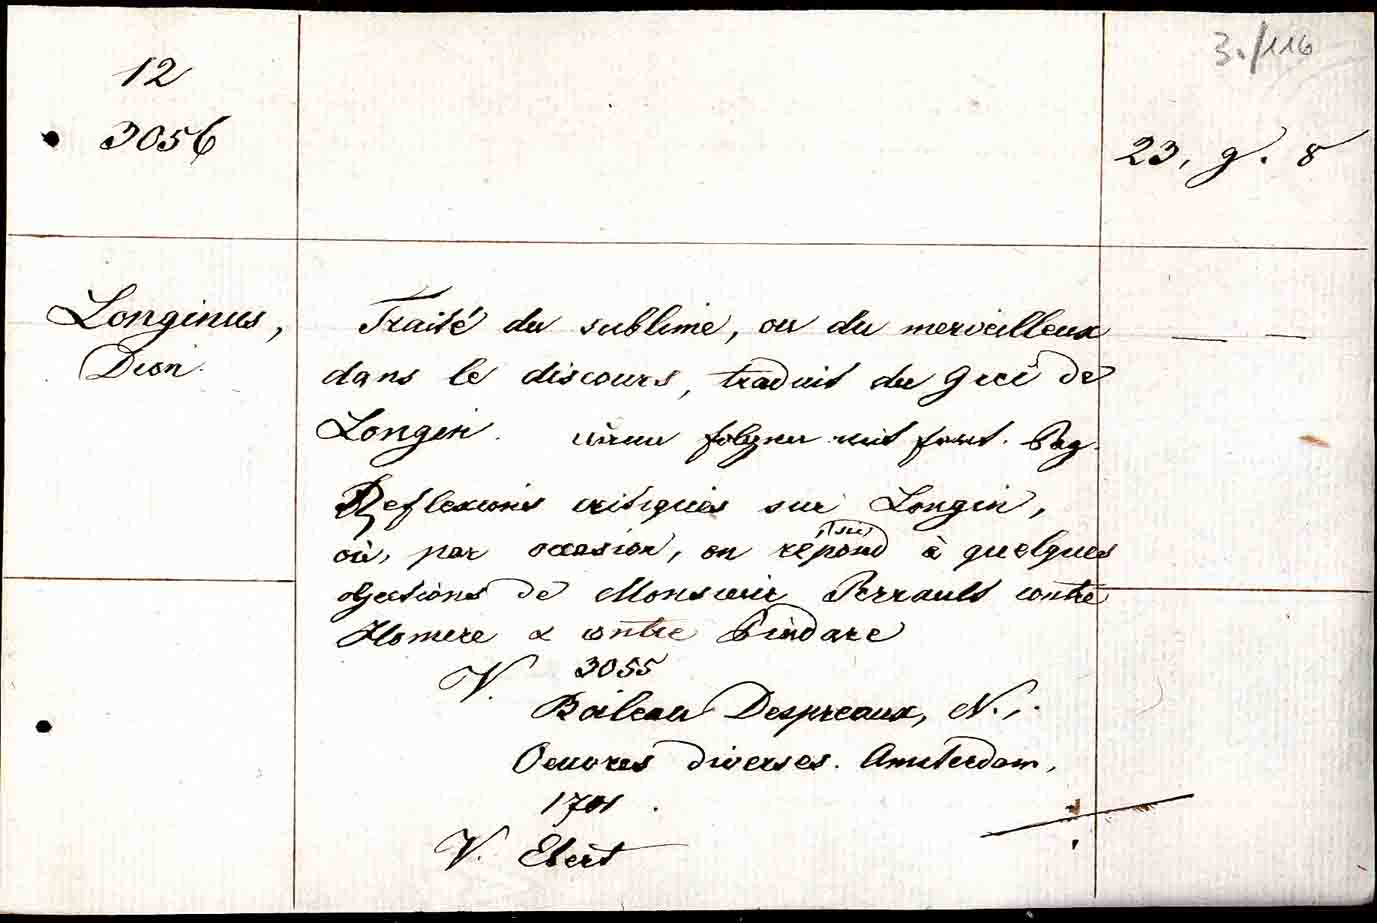 3./116
12
3056
23, g. 8
Longinus,
Dion.
Traité du sublime, ou du merveilleux
dans le discours, traduit du Grec de
Longin. fort. Pag.
Reflexions critiques sur Longin,
où, par occasion, on répond (sic) à quelques
objections de Monsieur Perrault contre
Homere & contre Pindare
V. 3055
Boileau Despreaux, N.,
Oeuvres diverses. Amsterdam,
1701.
V. Ebert